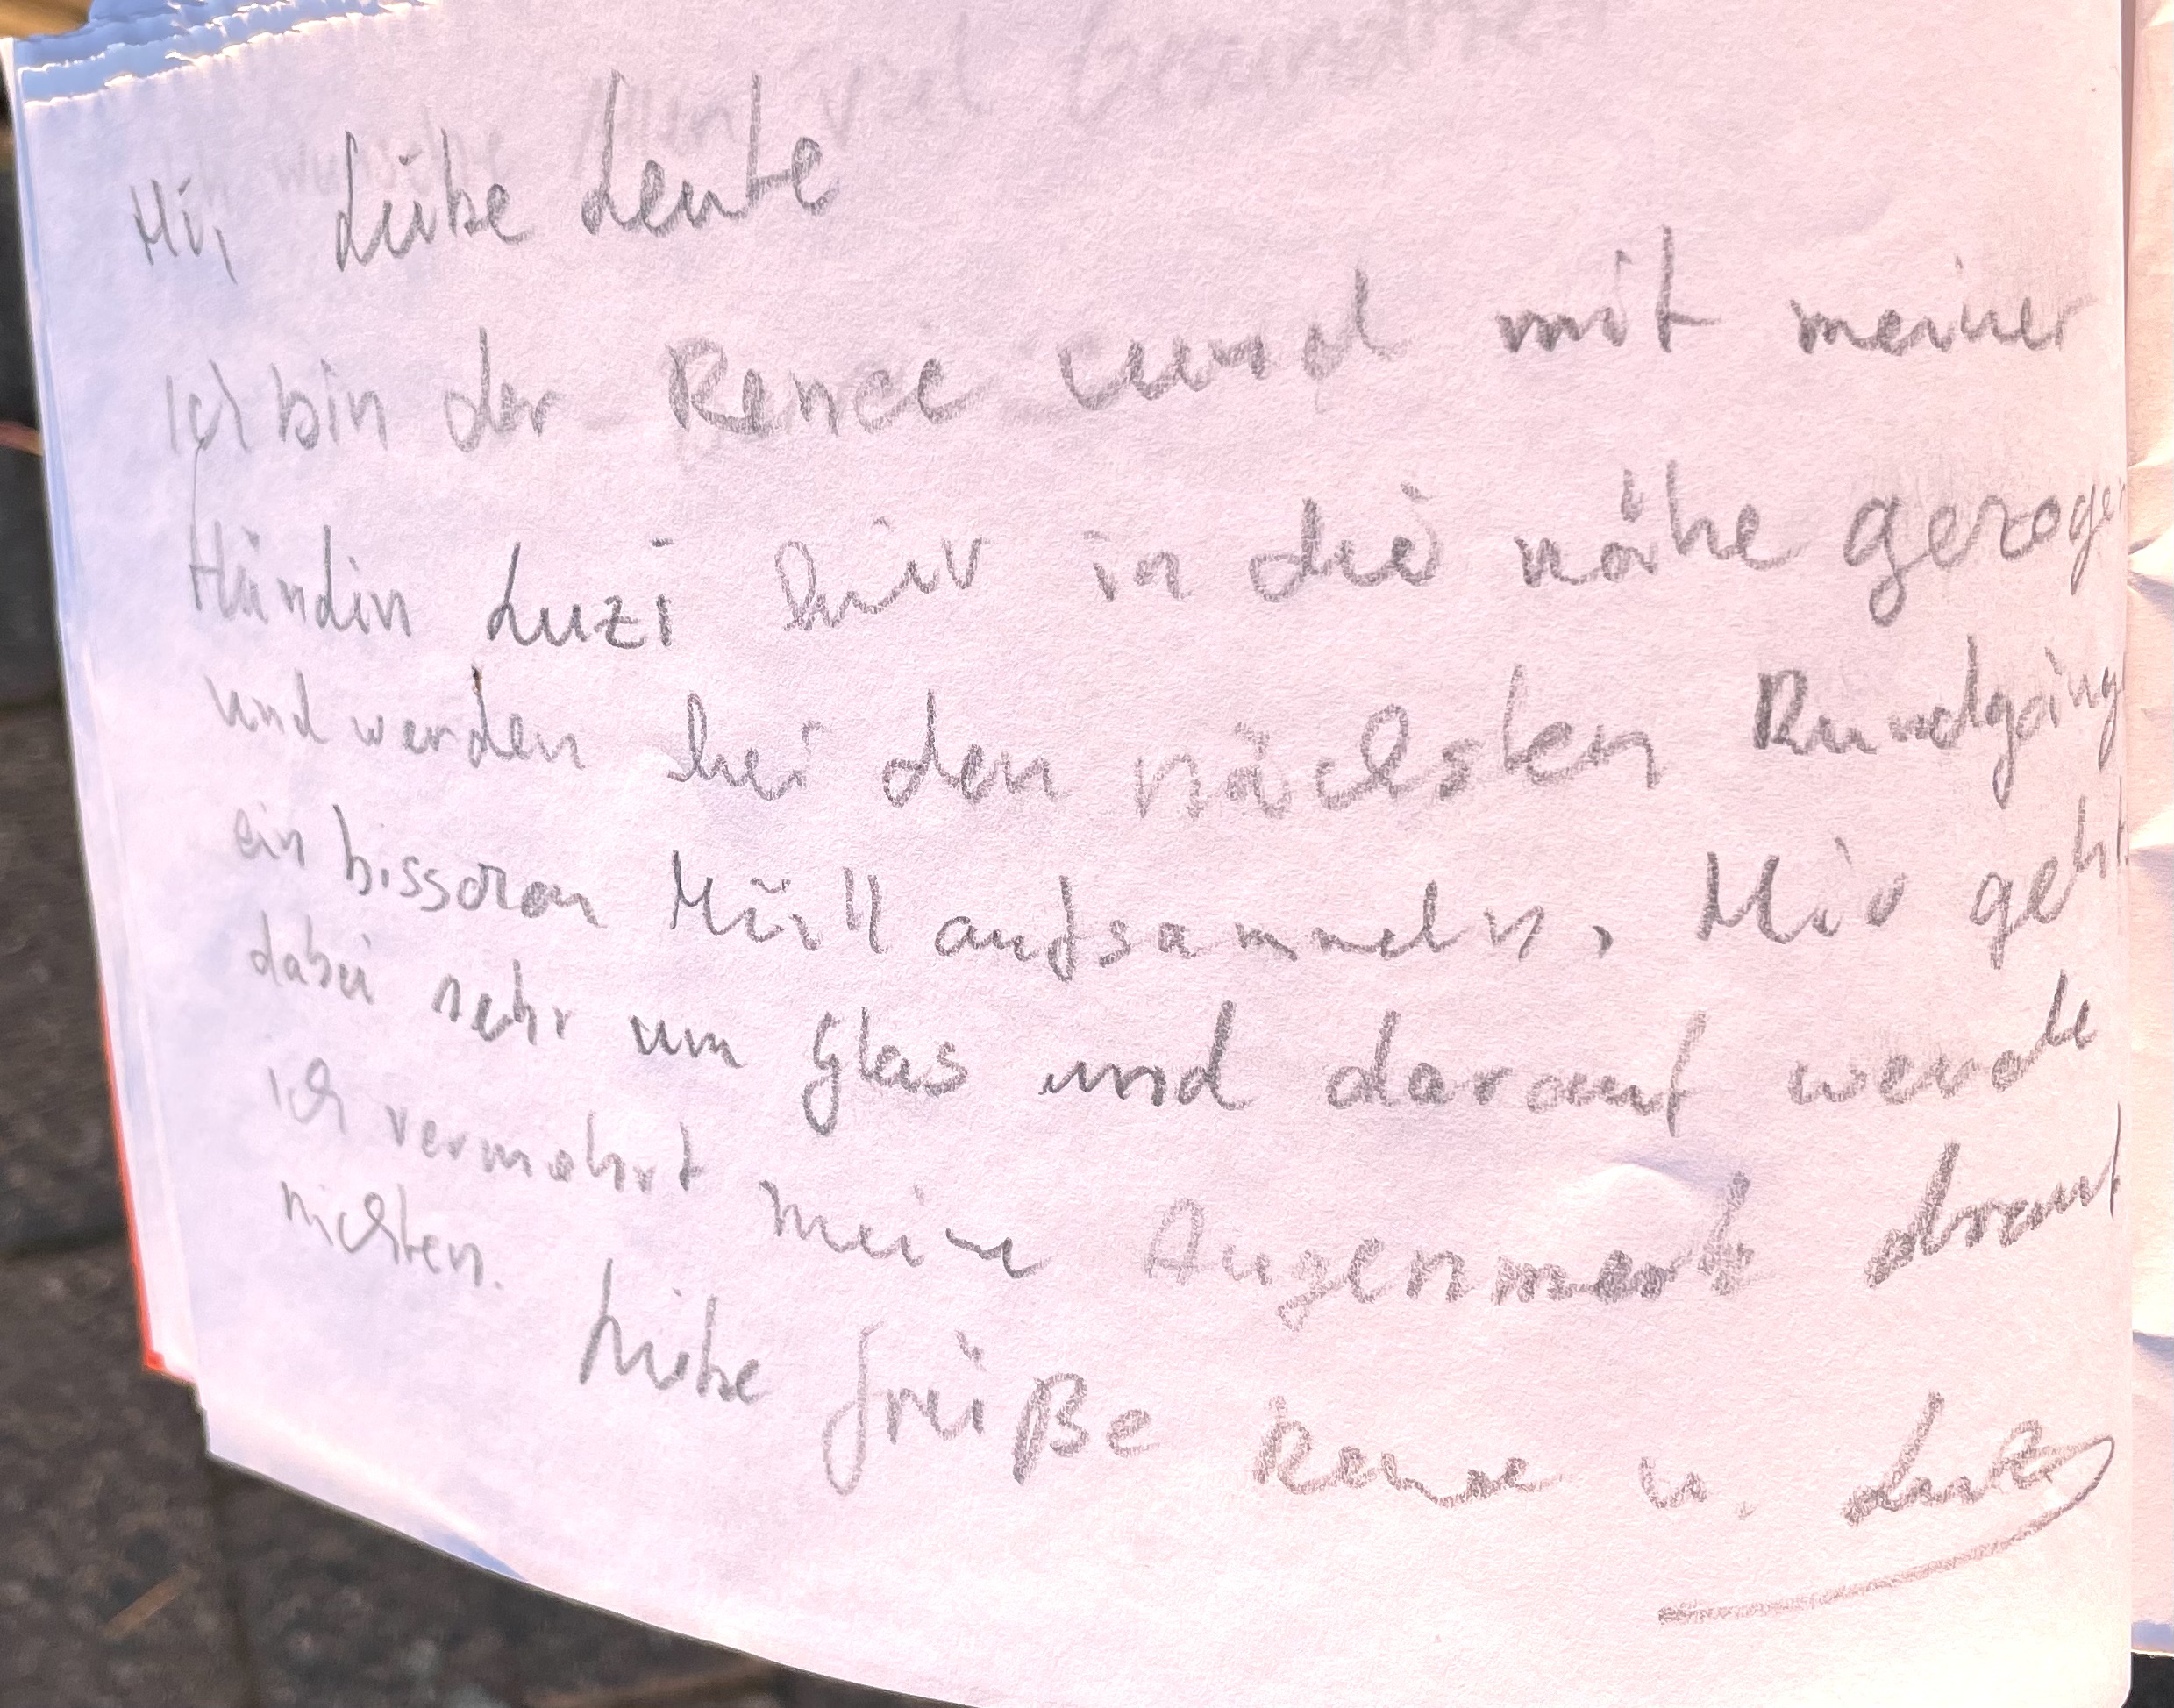 wünsche Allen viel Gesundhe
Hi, Liebe Leute
Ich bin der Renee und mit meiner
Hündin Luzi hir in die nähe gezogen
und werden bei den nächsten Rundgäng
ein bisschen Müll aufsammeln. Mir geht
dabei sehr um Glas und darauf werde
ich vermehrt meine Augenmerk drauf
richten.
Liebe Grüße Renee u. Luzi